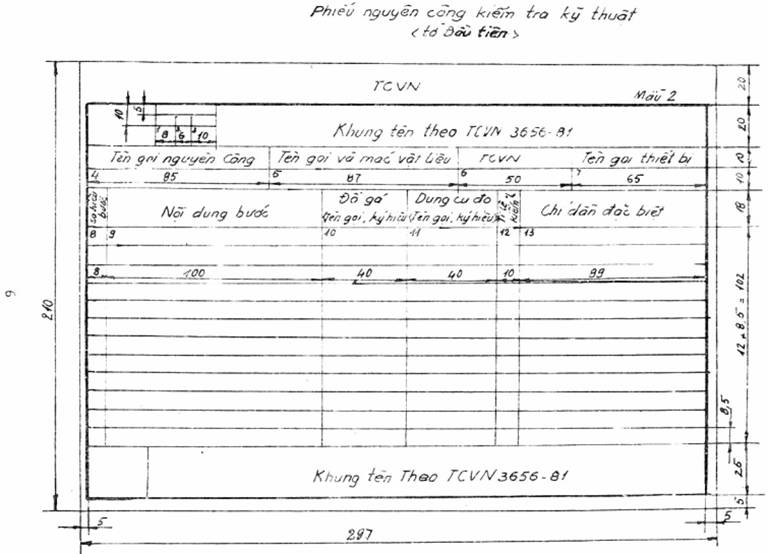 Phiếu nguyên công kiểm tra kỹ thuật
<tờ Đầu tiên>
TCVN
Mẫu 2
10
5
1
2
3
8 6 10
Khung tên theo TCVN 3656-81
Tên gọi nguyên công Tên gọi và mác vật liệu TCVN Tên gọi thiết bị
4 5 6 7
85 87 50 65
Số hiệu bước Nội dung bước Đồ gá Dụng cụ đo Chỉ dẫn đặc biệt
(Tên gọi, ký hiệu) (Tên gọi, ký hiệu) kiểm
8 9 10 11 12 13
8 100 40 40 10 99
Khung tên Theo TCVN 3656-81
20
20
10
10
18
12 x 8,5 = 102
8,5
26
5
210
6
5
297
5